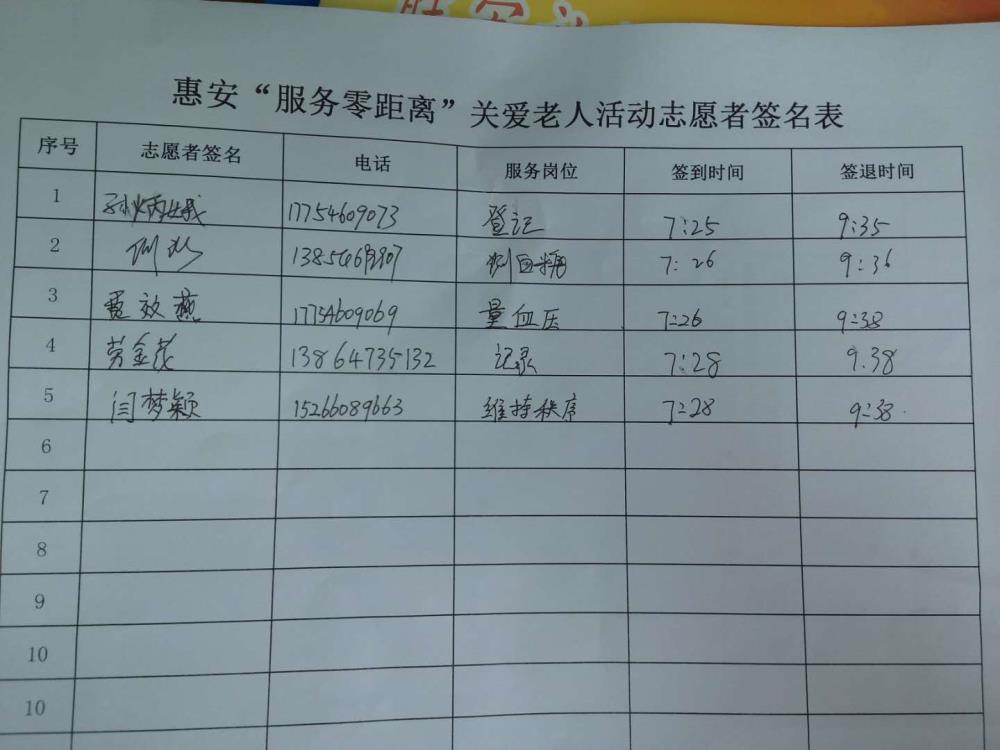 惠安“服务零距离”关爱老人活动志愿者签名表
序号 志愿者签名 电话 服务岗位 签到时间 签退时间
1 17754609073 登记 7:25 9:35
2 测血糖 7:26 9:36
3 效燕 17754609069 量血压 7:26 9:38
4 劳金花 13864735132 记录 7:28 9.38
5 闫梦颖 15266089663 维持秩序 7:28 9:38.
6
7
8
9
10
10